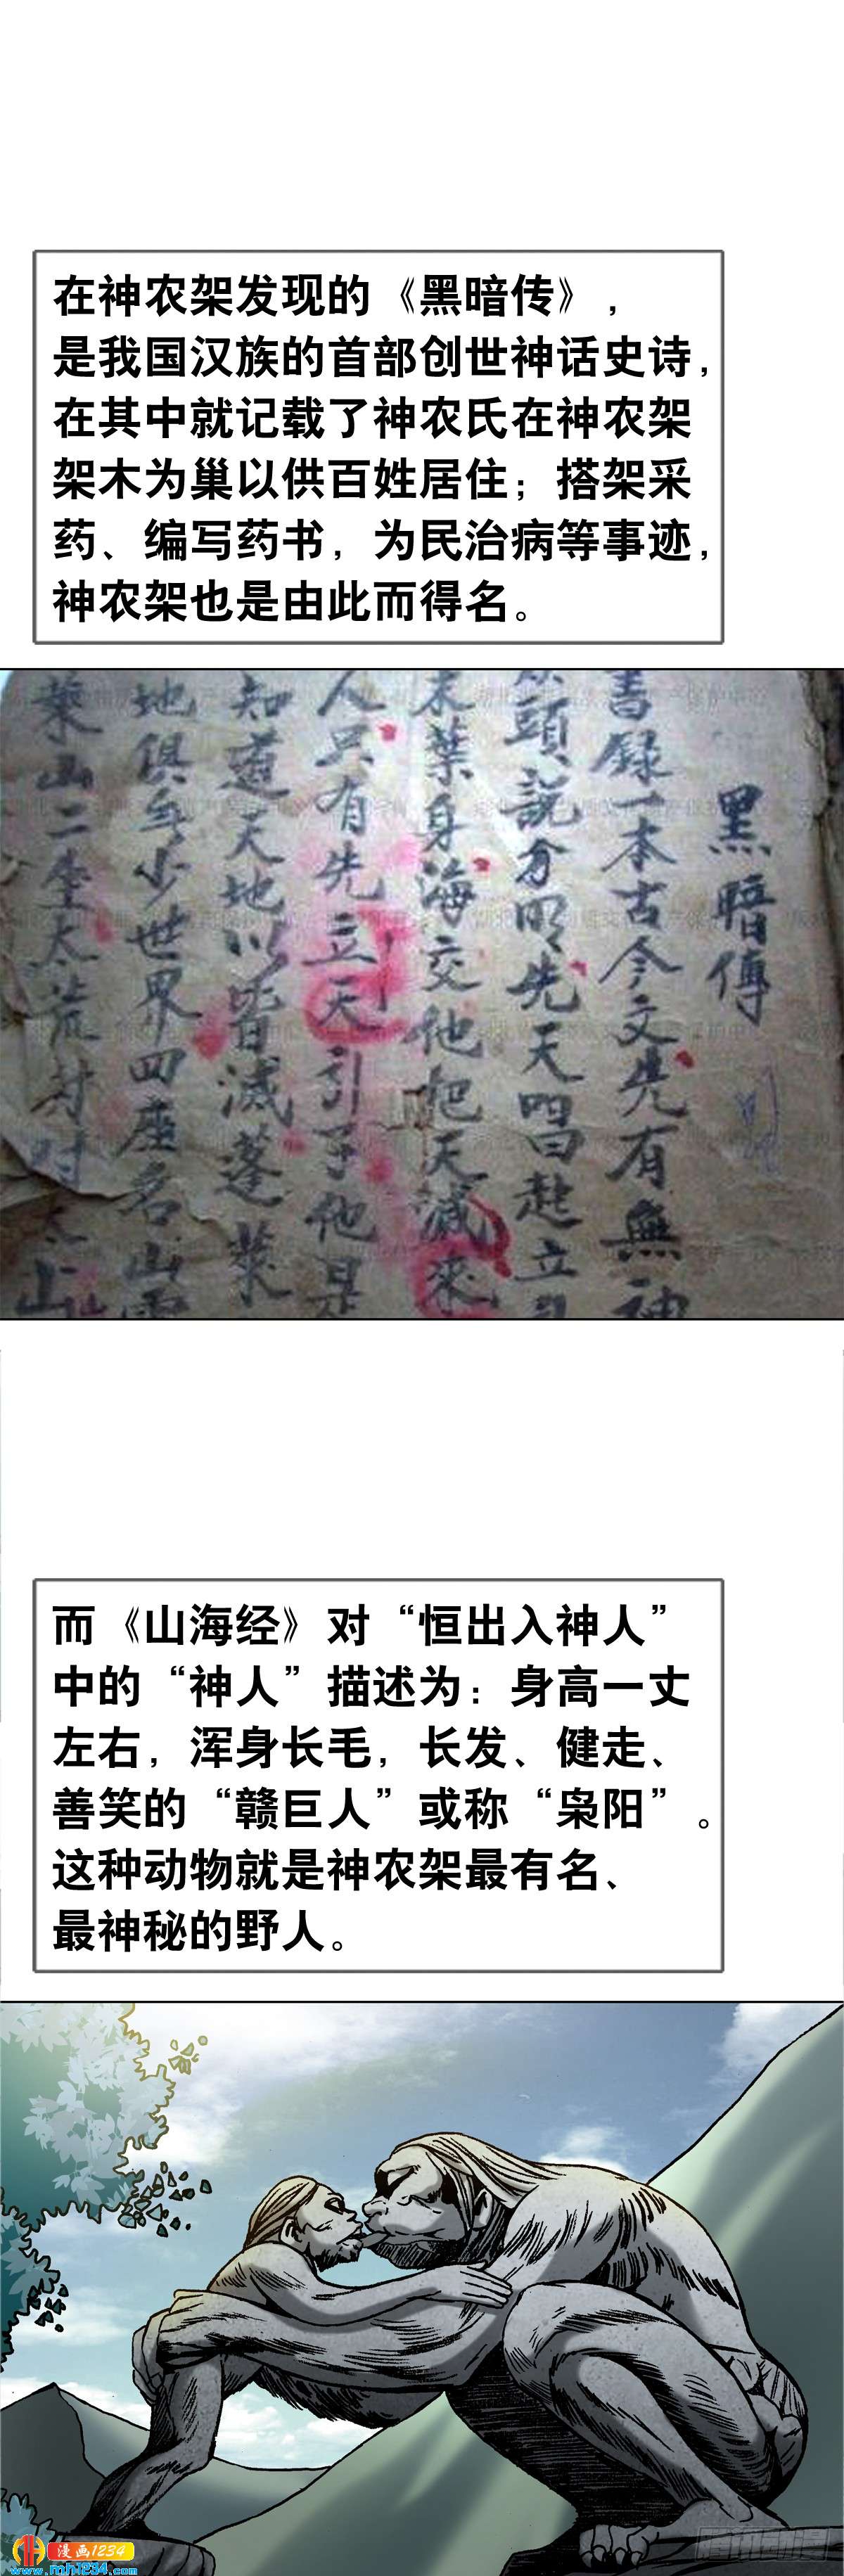 在神农架发现的《黑暗传》，
是我国汉族的首部创世神话史诗，
在其中就记载了神农氏在神农架
架木为巢以供百姓居住；搭架采
药、编写药书，为民治病等事迹，
神农架也是由此而得名。
黑暗傳
書録一本古今文先有無神
頭説分明先天唱起立
葉身海交他把天滅來
人只有先立天引子他是
知道天地以皆滅蓬萊
地俱年少世界四座名山
葉山二坐太荒村
而《山海经》对“恒出入神人”
中的“神人”描述为：身高一丈
左右，浑身长毛，长发、健走、
善笑的“赣巨人”或称“枭阳”。
这种动物就是神农架最有名、
最神秘的野人。
漫画1234
www.mh1234.com